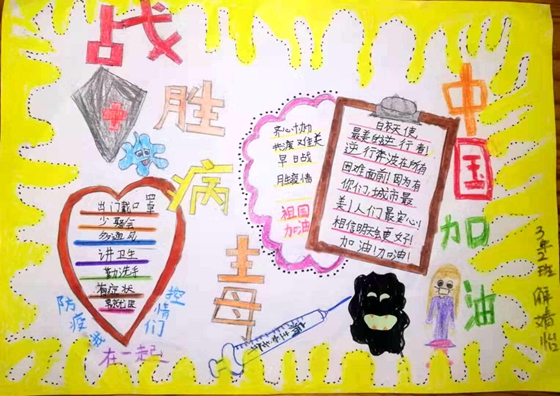 战
胜
病
毒
中
国
加
油
出门戴口罩
少聚会
通风
讲卫生
勤洗手
有症状
早就医
防疫
控情
我们
在一起
齐心协力
共渡难关
早日战
胜疫情
祖国
加油
白衣天使
最美的逆行者!
逆行者在所有
困难面前!因为有
你们,城市最
美!人们最安心!
相信明天会更好!
加油!加油!
3年2班 解婧怡